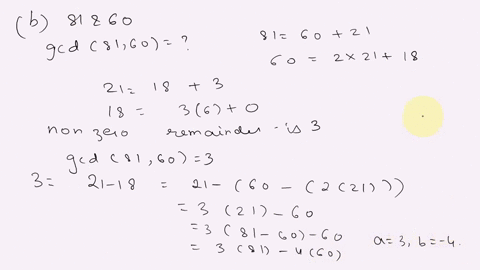 (b) 81 & 60
gcd (81,60) = ?
81 = 60 + 21
60 = 2×21 + 18
21 = 18 + 3
18 = 3(6) + 0
non zero remainder is 3
gcd (81,60) = 3
3 = 21-18 = 21-(60-(2(21)))
= 3 (21) - 60
= 3 (81-60) - 60
= 3 (81) - 4(60)
a=3, b=-4